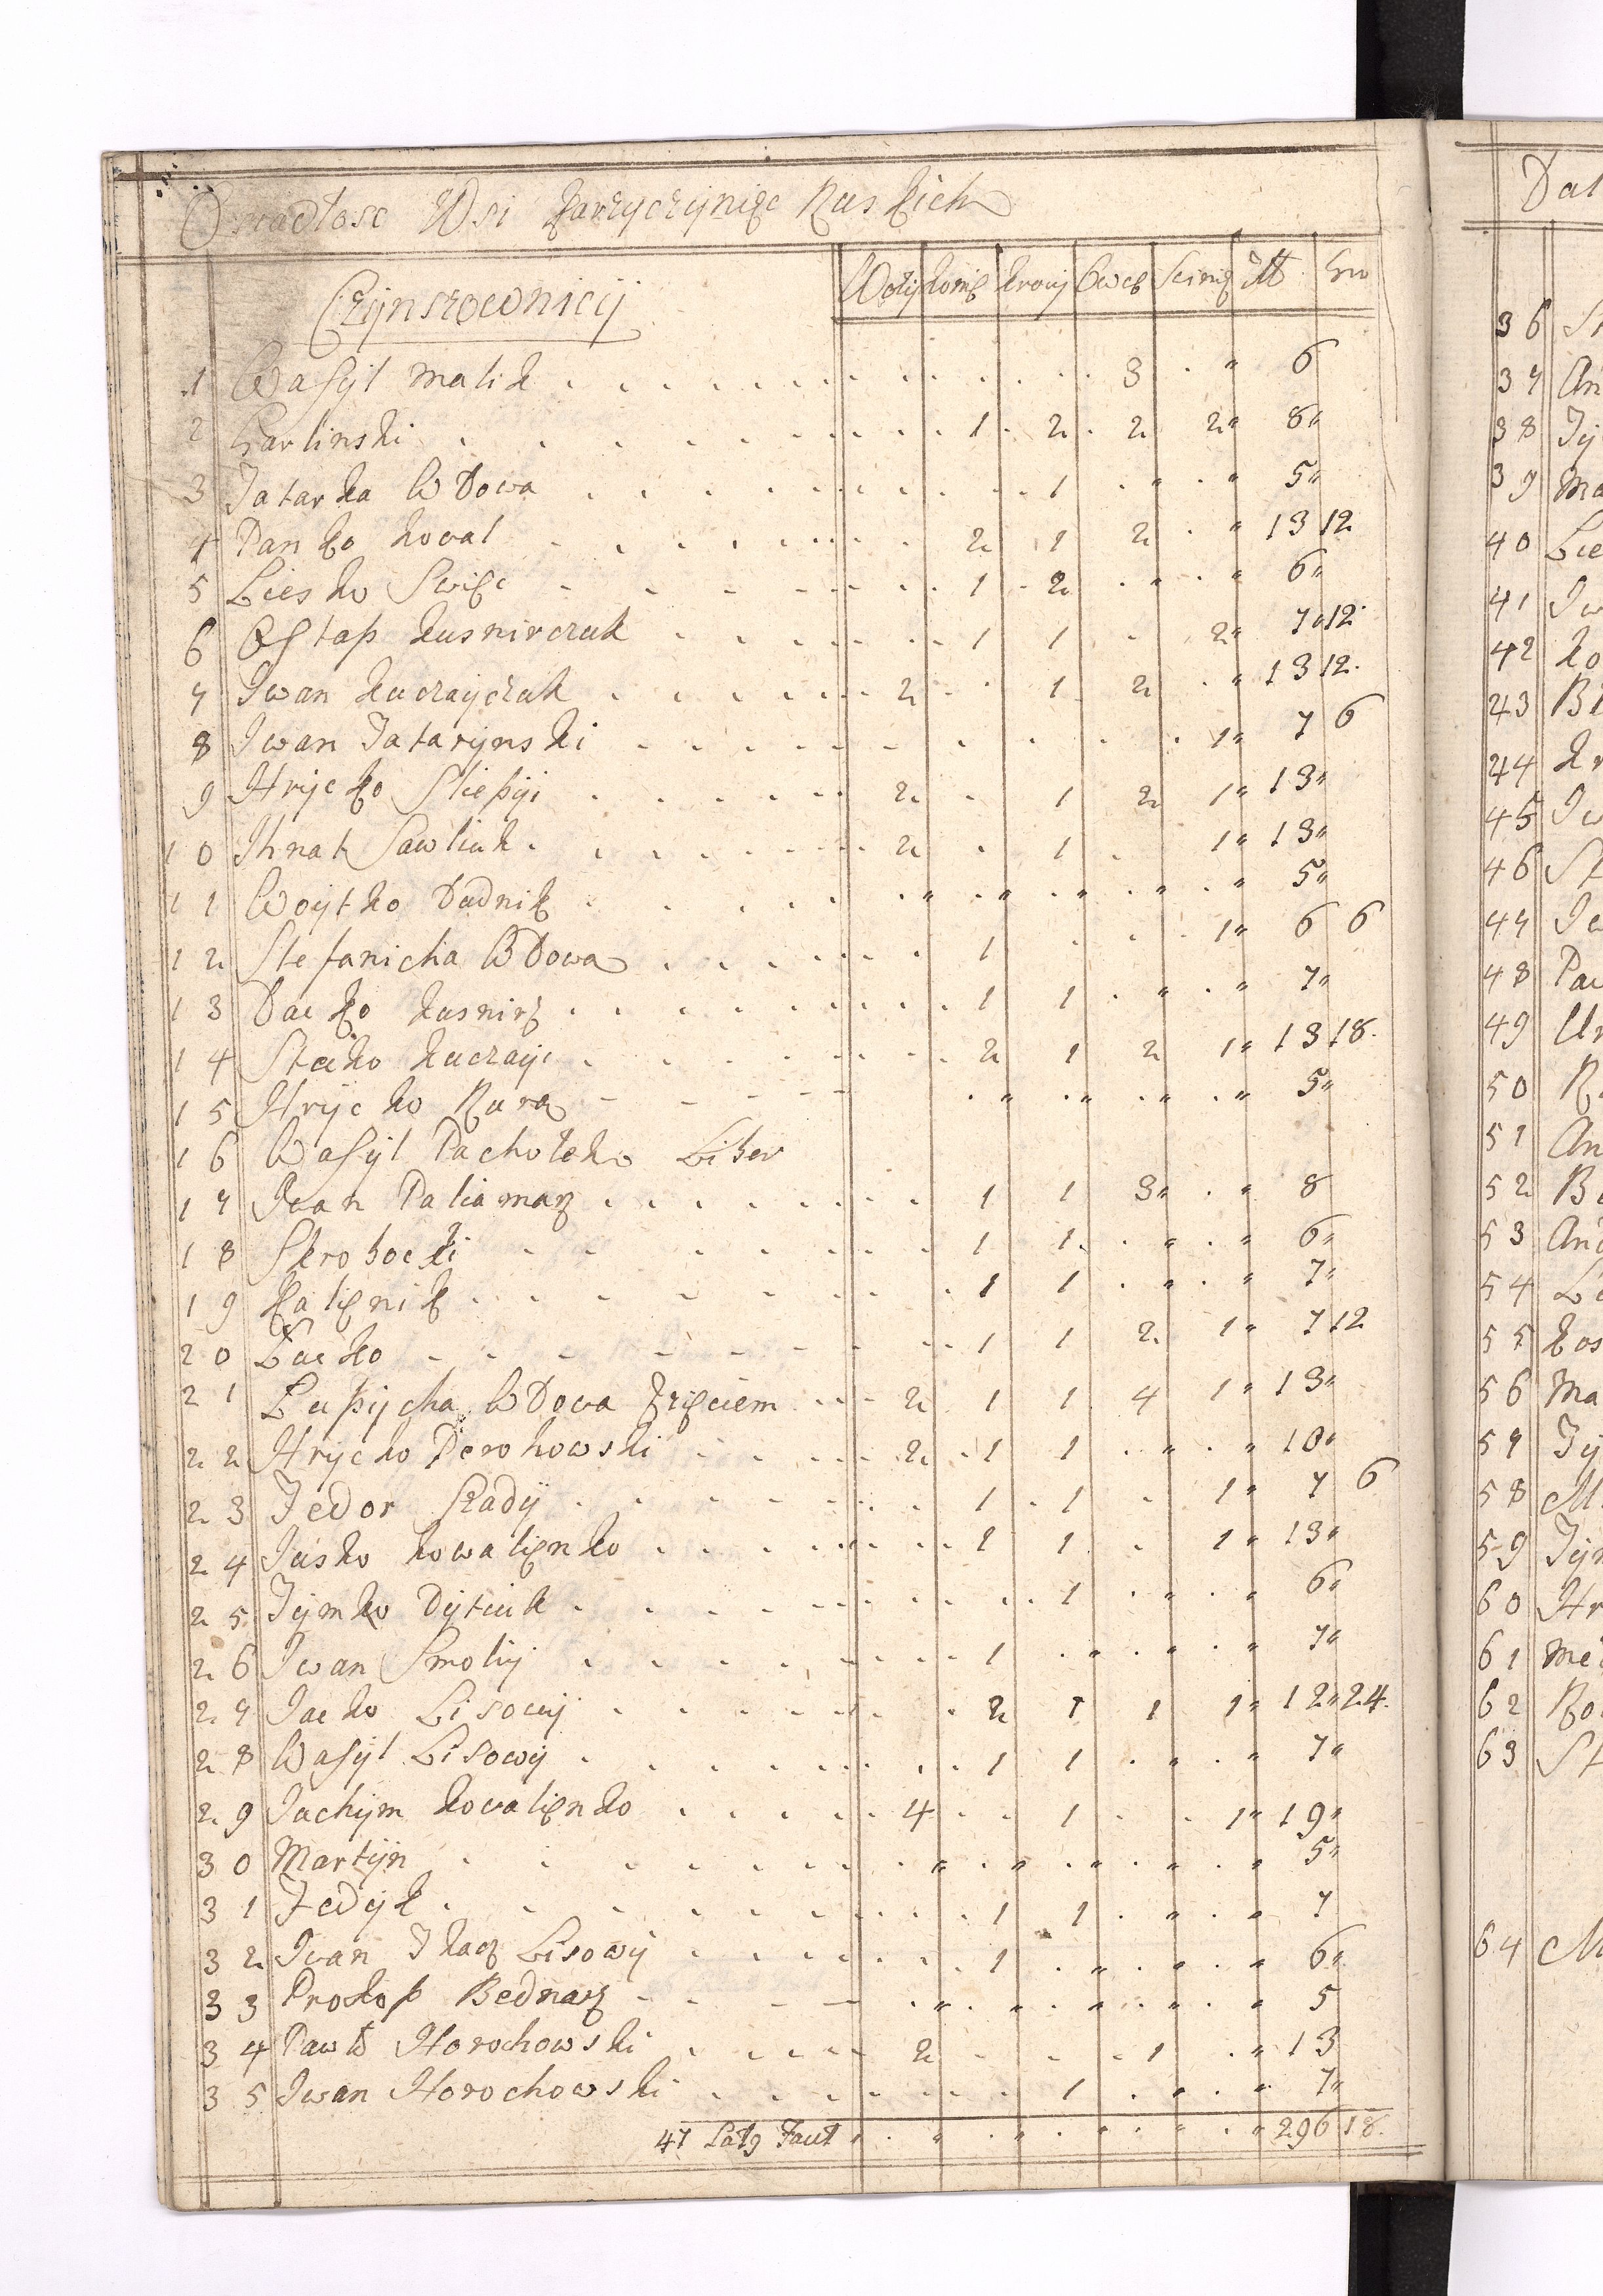 Osiadłosc Wsi Karzyczyniec Ruskich
Czynszownicy Woły konie krowy Owce Scinie Zł Gro
1 Wasyl Malik 3 " 6
2 Garlinski 1 2 2 2 " 8 "
3 Tatarka Wdowa 1 " " 5 "
4 Panko kowal 2 1 2 " 13 12
5 Liesko Swiec 1 2 " " 6 "
6 Ostap kusnirczuk 1 1 2 " 7 " 12
7 Iwan kuczayczuk 2 1 2 " 13 12
8 Iwan Tatarynski 1 " 7 6
9 Hrycko Sliepyi 2 1 2 1 " 13 "
10 Ihnat Sawliuk 2 1 1 " 13 "
11 Woytko Dudnik " " " " " 5 "
12 Stefanicha Wdowa 1 1 " 6 6
13 Dacko kusnirz 1 1 " " 7 "
14 Stecko kuczay 2 1 2 1 " 13 18
15 Hrycko Rura " " " " 5 "
16 Wasyl Pacholeko Liber
17 Iwan Paliamarz 1 1 3 " " 8
18 Skrobocki 1 1 " " 6 "
19 Kalienik 1 1 " " 7 "
20 Lacko 1 1 2 1 " 7 12
21 Lupycha Wdowa Zzięciem 2 1 1 4 1 " 13 "
22 Hrycko Perohowski 2 1 1 " " 10 "
23 Fedor Szady 1 1 1 " 7 6
24 Jusko kowalienko 2 1 1 " 13 "
25 Tymko Dytiuk 1 " " 6 "
26 Iwan Smoliy 1 " " " 7 "
27 Jacko Lisowy 2 1 1 1 " 12 " 24
28 Wasyl Lisowy 1 1 " 7 "
29 Jachym kowalienko 4 1 1 " 19 "
30 Martyn " " " " " 5 "
31 Fedyk 1 1 " " 7
32 Iwan Tkacz Lisowy 1 " " " 6 "
33 Prokop Bednarz " " " " " 5
34 Pawło Horochowski 2 1 " 13
35 Iwan Horochowski 1 " " 7 "
47 Latg Faut " " " " " " 296 18
Dal
36 St
37 An
38 Ty
39 Ma
40 Lie
41 Iw
42 ko
43
44 kr
45 Iw
46 St
47
48 Pa
49
50 R
51 An
52
53 And
54
55 kos
56 Ma
57 Ty
58 M
59 Tym
60 Hr
61
62
63 St
64 M